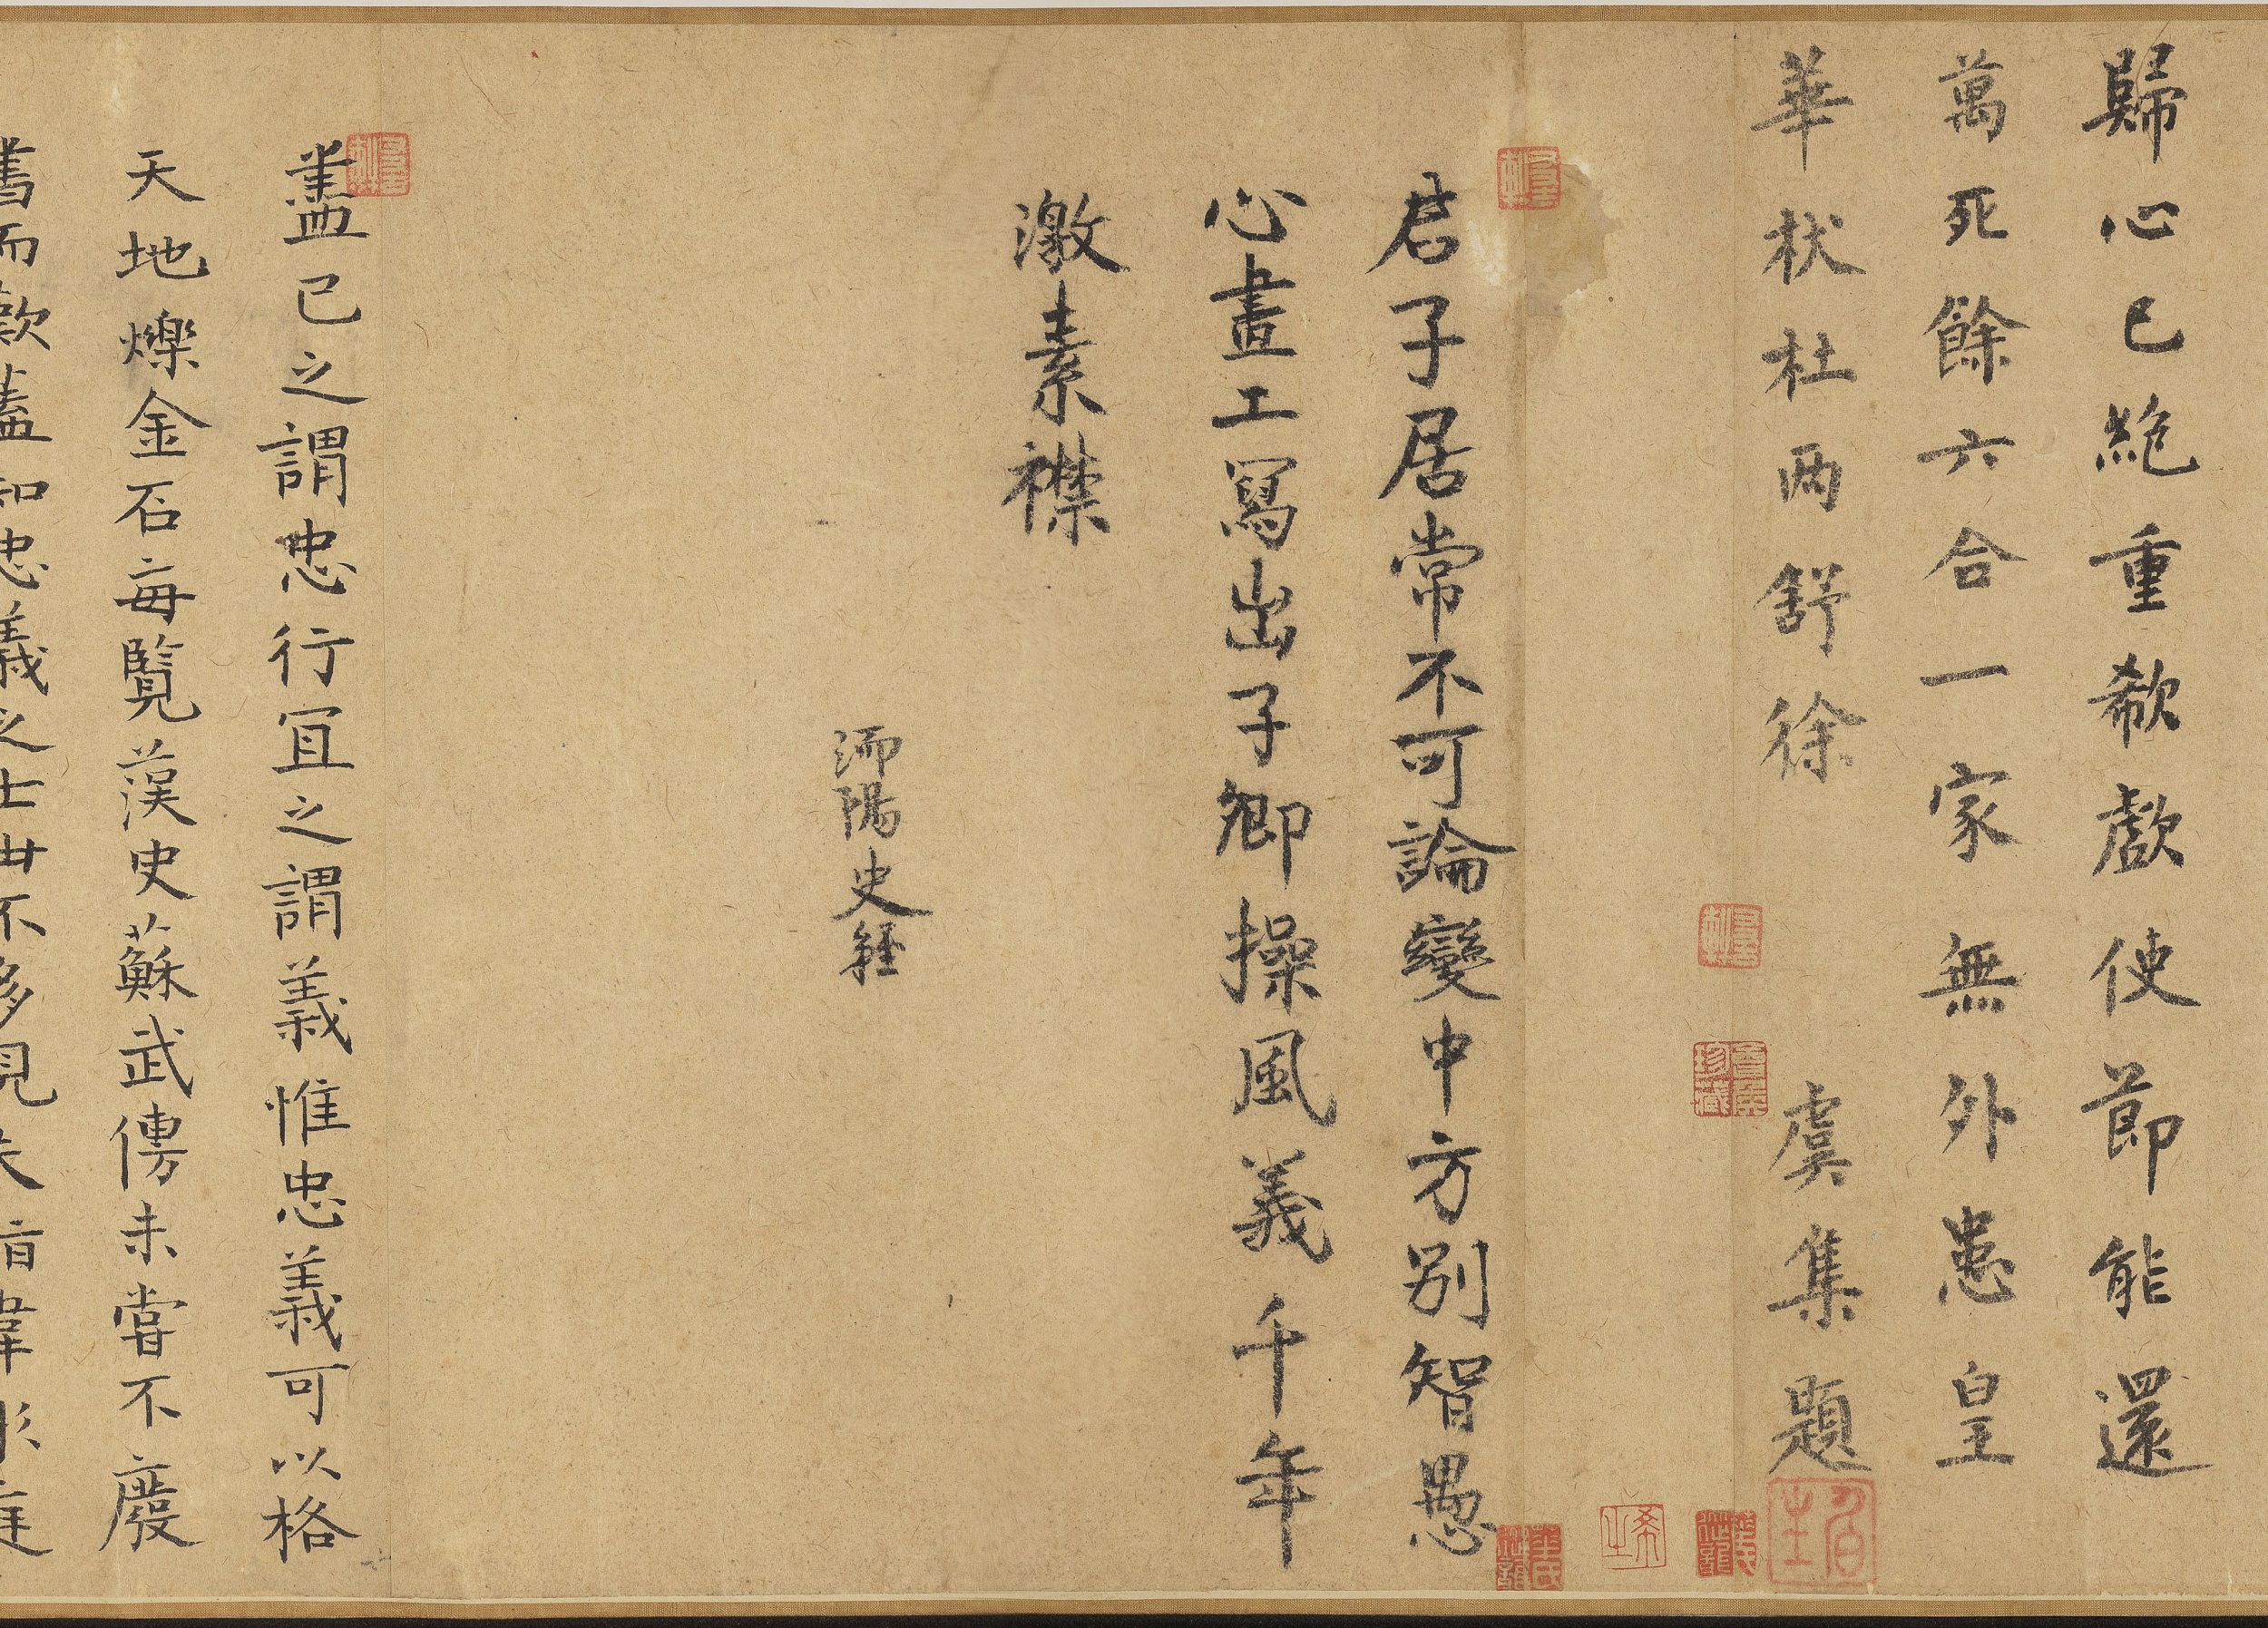 歸心已絶重欷歔使節能還
萬死餘六合一家無外患皇
華杕杜两舒徐
虞集題
君子居常不可論變中方别智愚
心畫工寫出子卿操風義千年
激素襟
沛陽史
盡已之謂忠行宜之謂義惟忠義可以格
天地爍金石每覽漢史蘇武傳未嘗不廢
書而歎蓋知忠義之士世不多見矣
珍藏